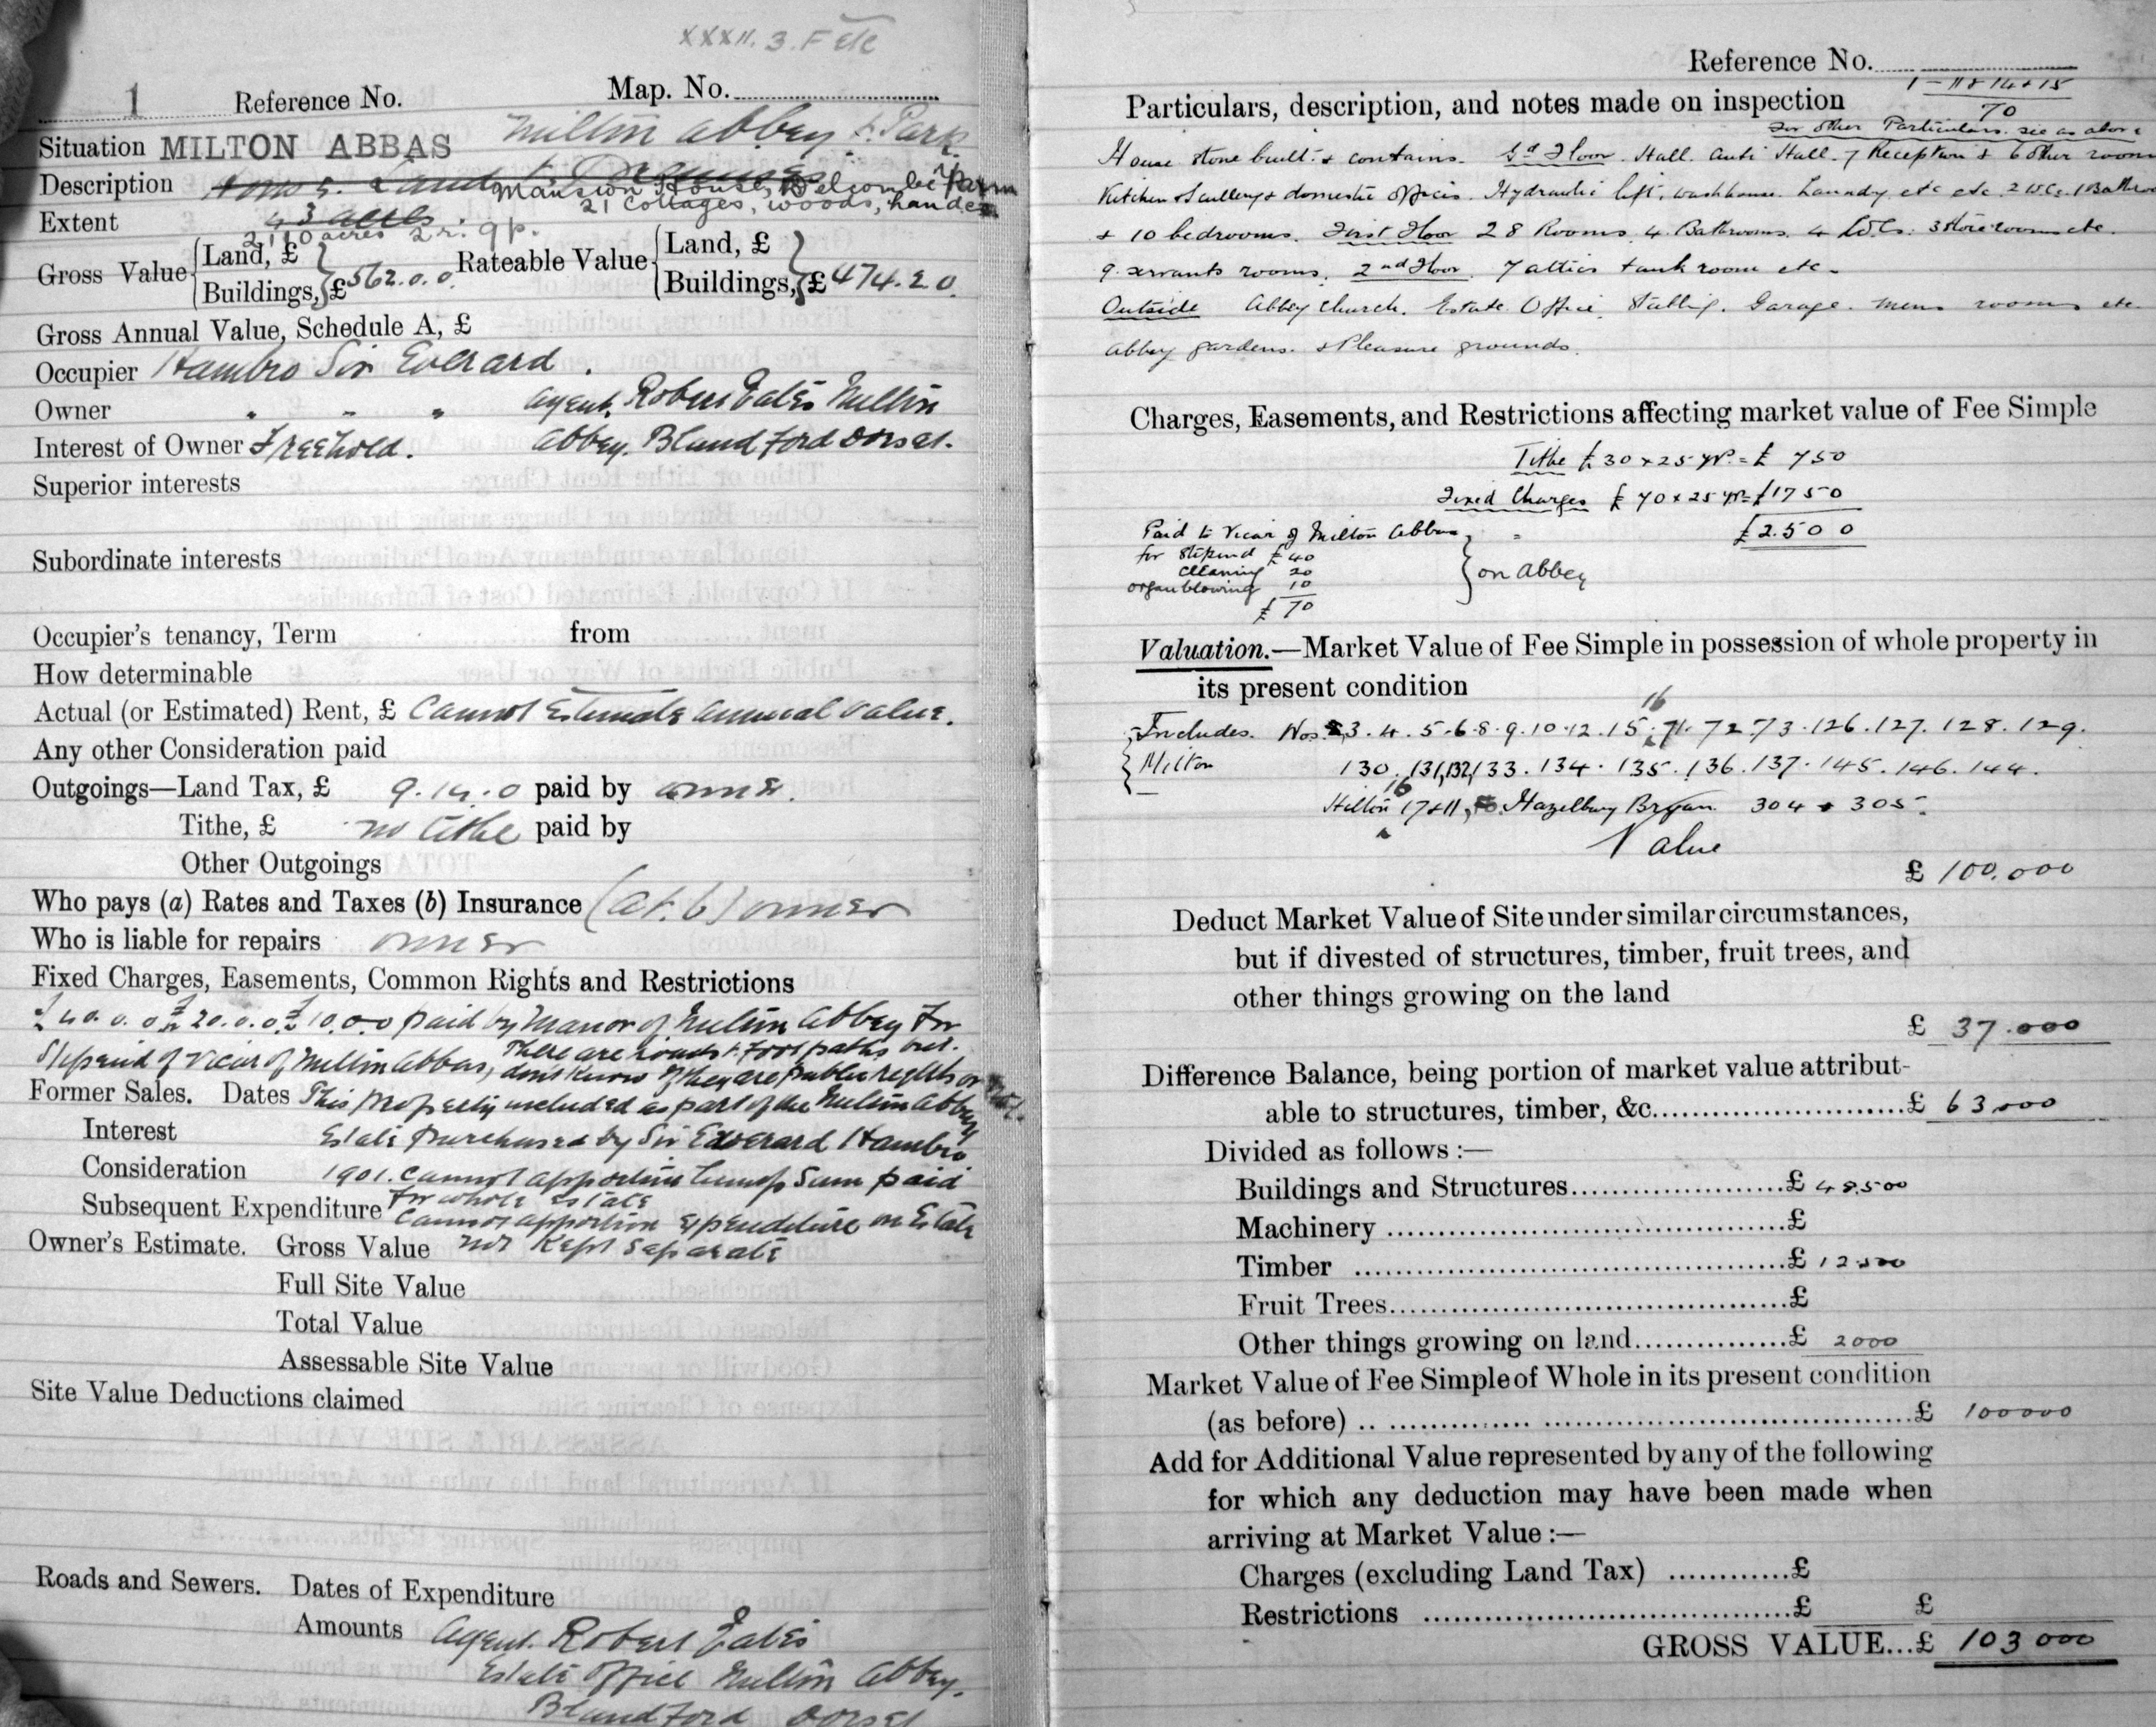 XXXII. 3. F etc
1 Reference No. Map. No.
Situation MILTON ABBAS Milton Abbey & Park
Description House & Land & Premises Mansion House, Delcombe Farm
21 Cottages, woods, land etc
Extent 43 acres
2110 acres 2r. 9p.
Gross Value { Land, £ Buildings, } £562.0.0 Rateable Value { Land, £ Buildings, } £474.20.
Gross Annual Value, Schedule A, £
Occupier Hambro Sir Everard.
Owner " " " agent. Robert Eates Milton
Interest of Owner Freehold. Abbey. Blandford Dorset.
Superior interests
Subordinate interests
Occupier's tenancy, Term from
How determinable
Actual (or Estimated) Rent, £ Cannot Estimate annual value.
Any other Consideration paid
Outgoings—Land Tax, £ 9.14.0 paid by owner.
Tithe, £ no tithe paid by
Other Outgoings
Who pays (a) Rates and Taxes (b) Insurance (a & b) owner
Who is liable for repairs owner
Fixed Charges, Easements, Common Rights and Restrictions
£40.0.0 £20.0.0 £10.0.0 paid by Manor of Milton Abbey for
Stipend of Vicar of Milton Abbas, There are roads & footpaths but.
don't know if they are public rights or not.
Former Sales. Dates This property included as part of the Milton Abbey
Interest Estate purchased by Sir Everard Hambro
Consideration 1901. Cannot apportion lump sum paid
for whole Estate
Subsequent Expenditure Cannot apportion expenditure on Estate
Owner's Estimate. Gross Value not kept separate
Full Site Value
Total Value
Assessable Site Value
Site Value Deductions claimed
Roads and Sewers. Dates of Expenditure
Amounts agent. Robert Eates
Estate Office Milton Abbey.
Blandford Dorset
Reference No.
1 - 11 & 14 & 15
Particulars, description, and notes made on inspection 70
For other Particulars. see as above
House stone built. & contains. Gd Floor. Hall. Anti Hall. 7 Reception & 6 other rooms
Kitchen & Scullery & domestic offices. Hydraulic lift. washhouse. Laundry etc etc. 2 W.Cs. 1 Bathroom
& 10 bedrooms. First Floor 28 Rooms. 4 Bathrooms. 4 W.Cs. 3 Store rooms etc.
9 servants rooms. 2nd Floor. 7 attics tank room etc.
Outside Abbey Church. Estate Office. Stabling. Garage. mens rooms etc.
Abbey gardens. & Pleasure grounds.
Charges, Easements, and Restrictions affecting market value of Fee Simple
Tithe £30 x 25 yp. = £ 750
Fixed Charges £ 70 x 25 yp = £1750
Paid to Vicar of Milton Abbas, £2.500
for Stipend £40
cleaning 20 } on Abbey
organ blowing 10
£ 70
Valuation.—Market Value of Fee Simple in possession of whole property in
its present condition
16
Includes. Nos. 3.4.5.6.8.9.10.12.15.71.72.73.126.127.128.129.
Milton 130.131,132,133.134.135.136.137.145.146.144.
16
Hilton 17 & 11, Hazelbury Bryan 304 & 305.
Value
£ 100.000
Deduct Market Value of Site under similar circumstances,
but if divested of structures, timber, fruit trees, and
other things growing on the land
£ 37.000
Difference Balance, being portion of market value attribut-
able to structures, timber, &c. £ 63,000
Divided as follows :—
Buildings and Structures £ 48,500
Machinery £
Timber £ 12,500
Fruit Trees £
Other things growing on land £ 2000
Market Value of Fee Simple of Whole in its present condition
(as before) £ 100000
Add for Additional Value represented by any of the following
for which any deduction may have been made when
arriving at Market Value :—
Charges (excluding Land Tax) £
Restrictions £ £
GROSS VALUE...£ 103000